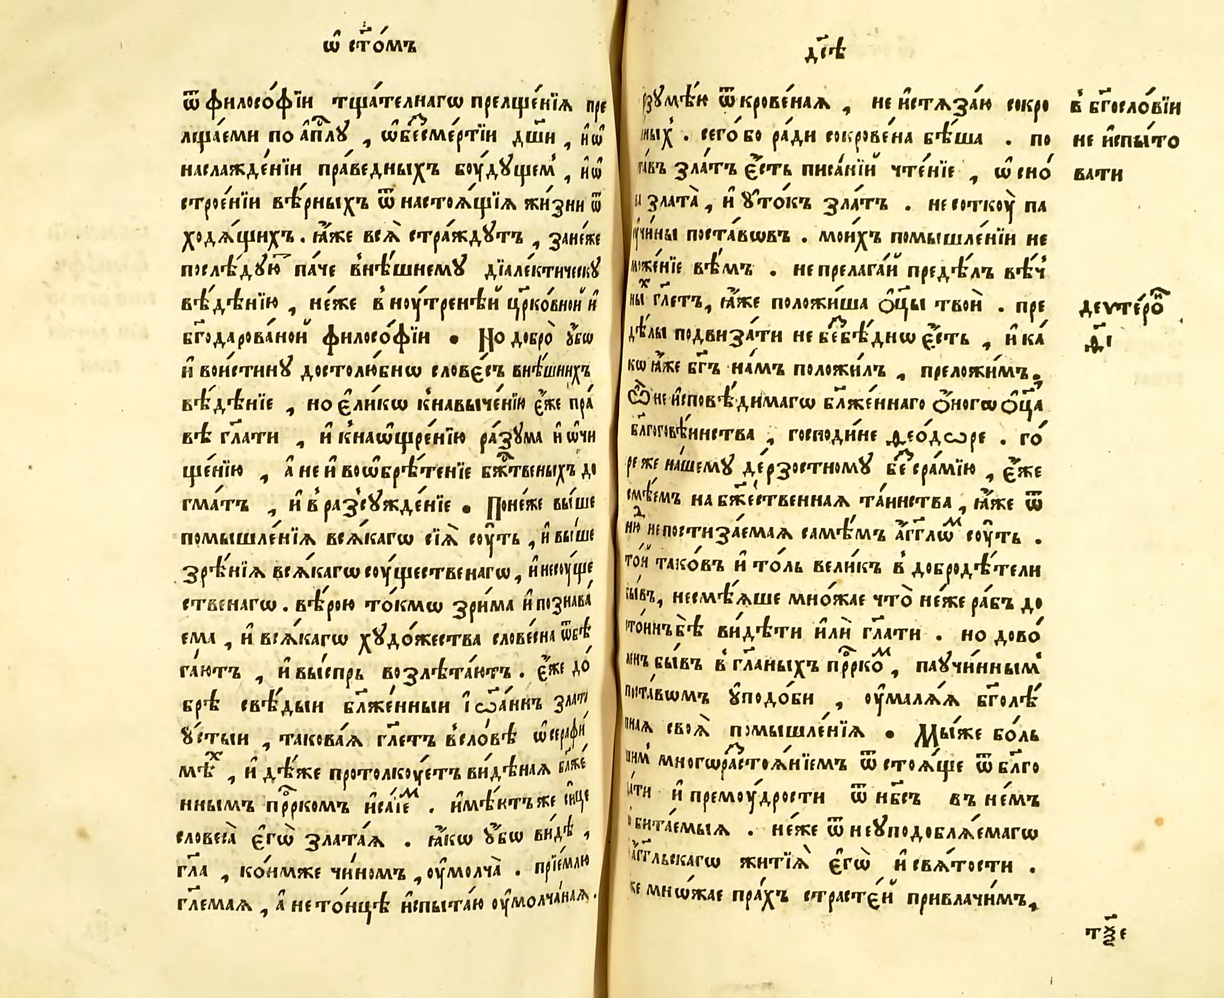 ѡ҆ ст҃о́мъ
ѿ филосо́фїи тща́телнагѡ прелще́нїѧ пре
лща́еми по а҆п҃лꙋ , ѡ҆бе́смертїи дш҃и , и҆ ѡ҆
наслажде́нїи пра́ведныхъ боу́дꙋщем , и҆ ѡ҆
строе́нїи вѣ́рныхъ ѿ настоѧ́щїѧ жи́зни ѿ
ходѧ́щихъ . ꙗ҆́же всѧ̀ стра́ждꙋтъ , зане́же
послѣ́дꙋю па́че внѣ́шнемꙋ дїале́ктическꙋ
вѣ́дѣнїю , не́же в ноу́тренѣй цр҃ко́вной и҆
бг҃одарова́ной филосо́фїи . Но добро̀ ᲂу҆́бѡ
и҆ вои́стинꙋ достолю́бнѡ слове́съ внѣ́шнихъ
вѣ́дѣнїе , но є҆ли́кѡ к навыче́нїю є҆́же пра́
вѣ гл҃ати , и҆ к наѡ҆стре́нїю ра́зꙋма и҆ ѡ҆чи
ще́нїю , а҆ не и҆ во ѡ҆брѣ́тенїе бж҃твеныхъ до
гма́тъ , и҆ в разсꙋжде́нїе . Поне́же вы́ше
помышле́нїѧ всѧ́кагѡ сїѧ̀ соу́ть , и҆ вы́ше
зрѣ́нїѧ всѧ́кагѡ соу́щественагѡ , и҆ несоуще
ственагѡ . вѣ́рою то́кмѡ зри́ма и҆ познава́
ема , и҆ всѧ́кагѡ хꙋдо́жества слове́сна ѿбѣ
га́ютъ , и҆ вы́спрь возлѣта́ютъ . є҆́же до́
брѣ свѣ́дыи бл҃же́нныи і҆ѡа́ннъ злато
ꙋ́стыи , такова́ѧ гл҃етъ в сло́вѣ ѡ҆ серафи́
мѣх , и҆дѣ́же протолкоу́етъ ви́дѣнаѧ бл҃же́
ннымъ прⷪ҇ркомъ и҆са́їем . и҆мѣ́ютъ же си́це
словеса̀ є҆гѡ̀ злата́ѧ . ꙗ҆́кѡ ᲂу҆́бѡ ви́дѣ ,
гл҃а , ко́имже чи́номъ , ᲂу҆молча̀ . прїе́млю
гл҃емаѧ , а҆ не то́нцѣ и҆спыта́ю ᲂу҆молча́наѧ .
дс҃ѣ
рзꙋмѣ́ю ѿкрове́наѧ , не и҆стѧза́ю сокро
ных . сего́ бо ра́ди сокрове́на бѣ́ша . по
та́въ зла́тъ є҆́сть писа́нїй чте́нїе , ѡ҆сно́
а зла́та , и҆ ᲂу҆то́къ зла́тъ . не соткоу̀ па
ꙋчи́ны поста́вѡвъ . мои́хъ помышле́нїи не
може́нїе вѣ́мъ . не прелага́й предѣ́лъ вѣ́ч
ных гл҃етъ , ꙗ҆́же положи́ша ѻ҆ц҃ы твоѝ . пре
дѣ́лы подвиза́ти не безбѣ́днѡ є҆́сть , и҆ ка́
кѡ ꙗ҆́же бг҃ъ на́мъ положи́лъ , преложи́мъ .
Ѽ не и҆сповѣ́димагѡ бл҃же́ннаго ѻ҆́ногѡ ѻ҆ц҃а
благоговѣ́инства , господи́не ѳео́дѡре . го́
ре же на́шемꙋ де́рзостномꙋ безсра́мїю , є҆́же
смѣ́емъ на бж҃е́ственнаѧ та́инства , ꙗ҆́же ѿ
ню́д непостиза́емаѧ самѣ́мъ а҆́гг҃лѡм соу́ть .
то́й тако́въ и҆ то́ль вели́къ в добродѣ́тели
бы́въ , несмѣ́ѧше мно́жае что̀ не́же ра́бъ до
сто́инъ бѣ̀ ви́дѣти и҆лѝ гл҃ати . но дово́
ленъ бы́въ в гл҃аныхъ прⷪ҇рком , паучи́нным
поста́вѡмъ ᲂу҆подо́би , ᲂу҆малѧ́ѧ бг҃олѣ́
пнаѧ своѧ̀ помышле́нїѧ . Мы́же бо́ль
шим многѡразстоѧ́нїемъ ѿстоѧ́ще ѿ бл҃го
да́ти и҆ премоу́дрости ѿ нб҃съ въ не́мъ
обита́емыѧ . не́же ѿ неꙋподоблѧ́емагѡ
а҆́гг҃льскагѡ житїѧ̀ є҆гѡ̀ и҆ свѧ́тости .
же мно́жае пра́хъ страсте́й привлачи́мъ ,
в бг҃осло́вїи
не и҆спы́то
вати
девтеро
ѳ҃і
тꙋ́ѯе